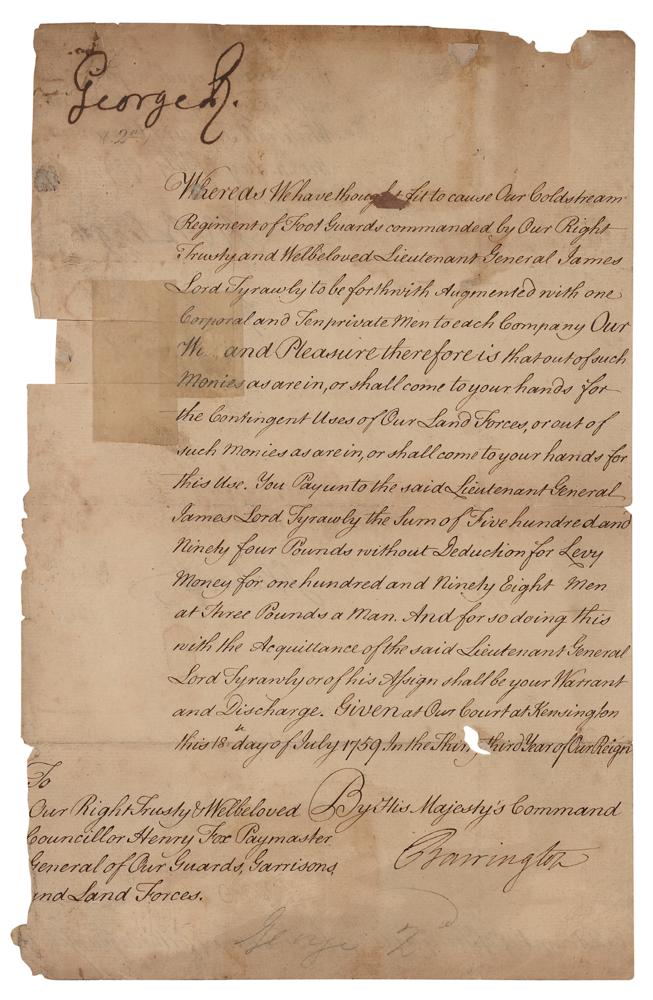 George R.
2nd
Whereas We have thought fit to cause Our Coldstream
Regiment of Foot Guards commanded by Our Right
Trusty and Welbeloved Lieutenant General James
Lord Tyrawly to be forthwith Augmented with one
Corporal and Ten private Men to each Company Our
and Pleasure therefore is that out of such
Monies as are in, or shall come to your hands for
the Contingent Uses of Our Land Forces, or out of
such Monies as are in, or shall come to your hands for
this Use. You Pay unto the said Lieutenant General
James Lord Tyrawly the Sum of Five hundred and
Ninety four Pounds without Deduction for Levy
Money for one hundred and Ninety Eight Men
at Three Pounds a Man. And for so doing this
with the Acquittance of the said Lieutenant General
Lord Tyrawly or of his Assign shall be your Warrant
and Discharge. Given at Our Court at Kensington
this 18th day of July 1759. In the Thirty third Year of Our Reign
To
Our Right Trusty & Welbeloved
Councillor Henry Fox Paymaster
General of Our Guards, Garrisons,
and Land Forces.
By His Majesty's Command
Barrington
George 2d